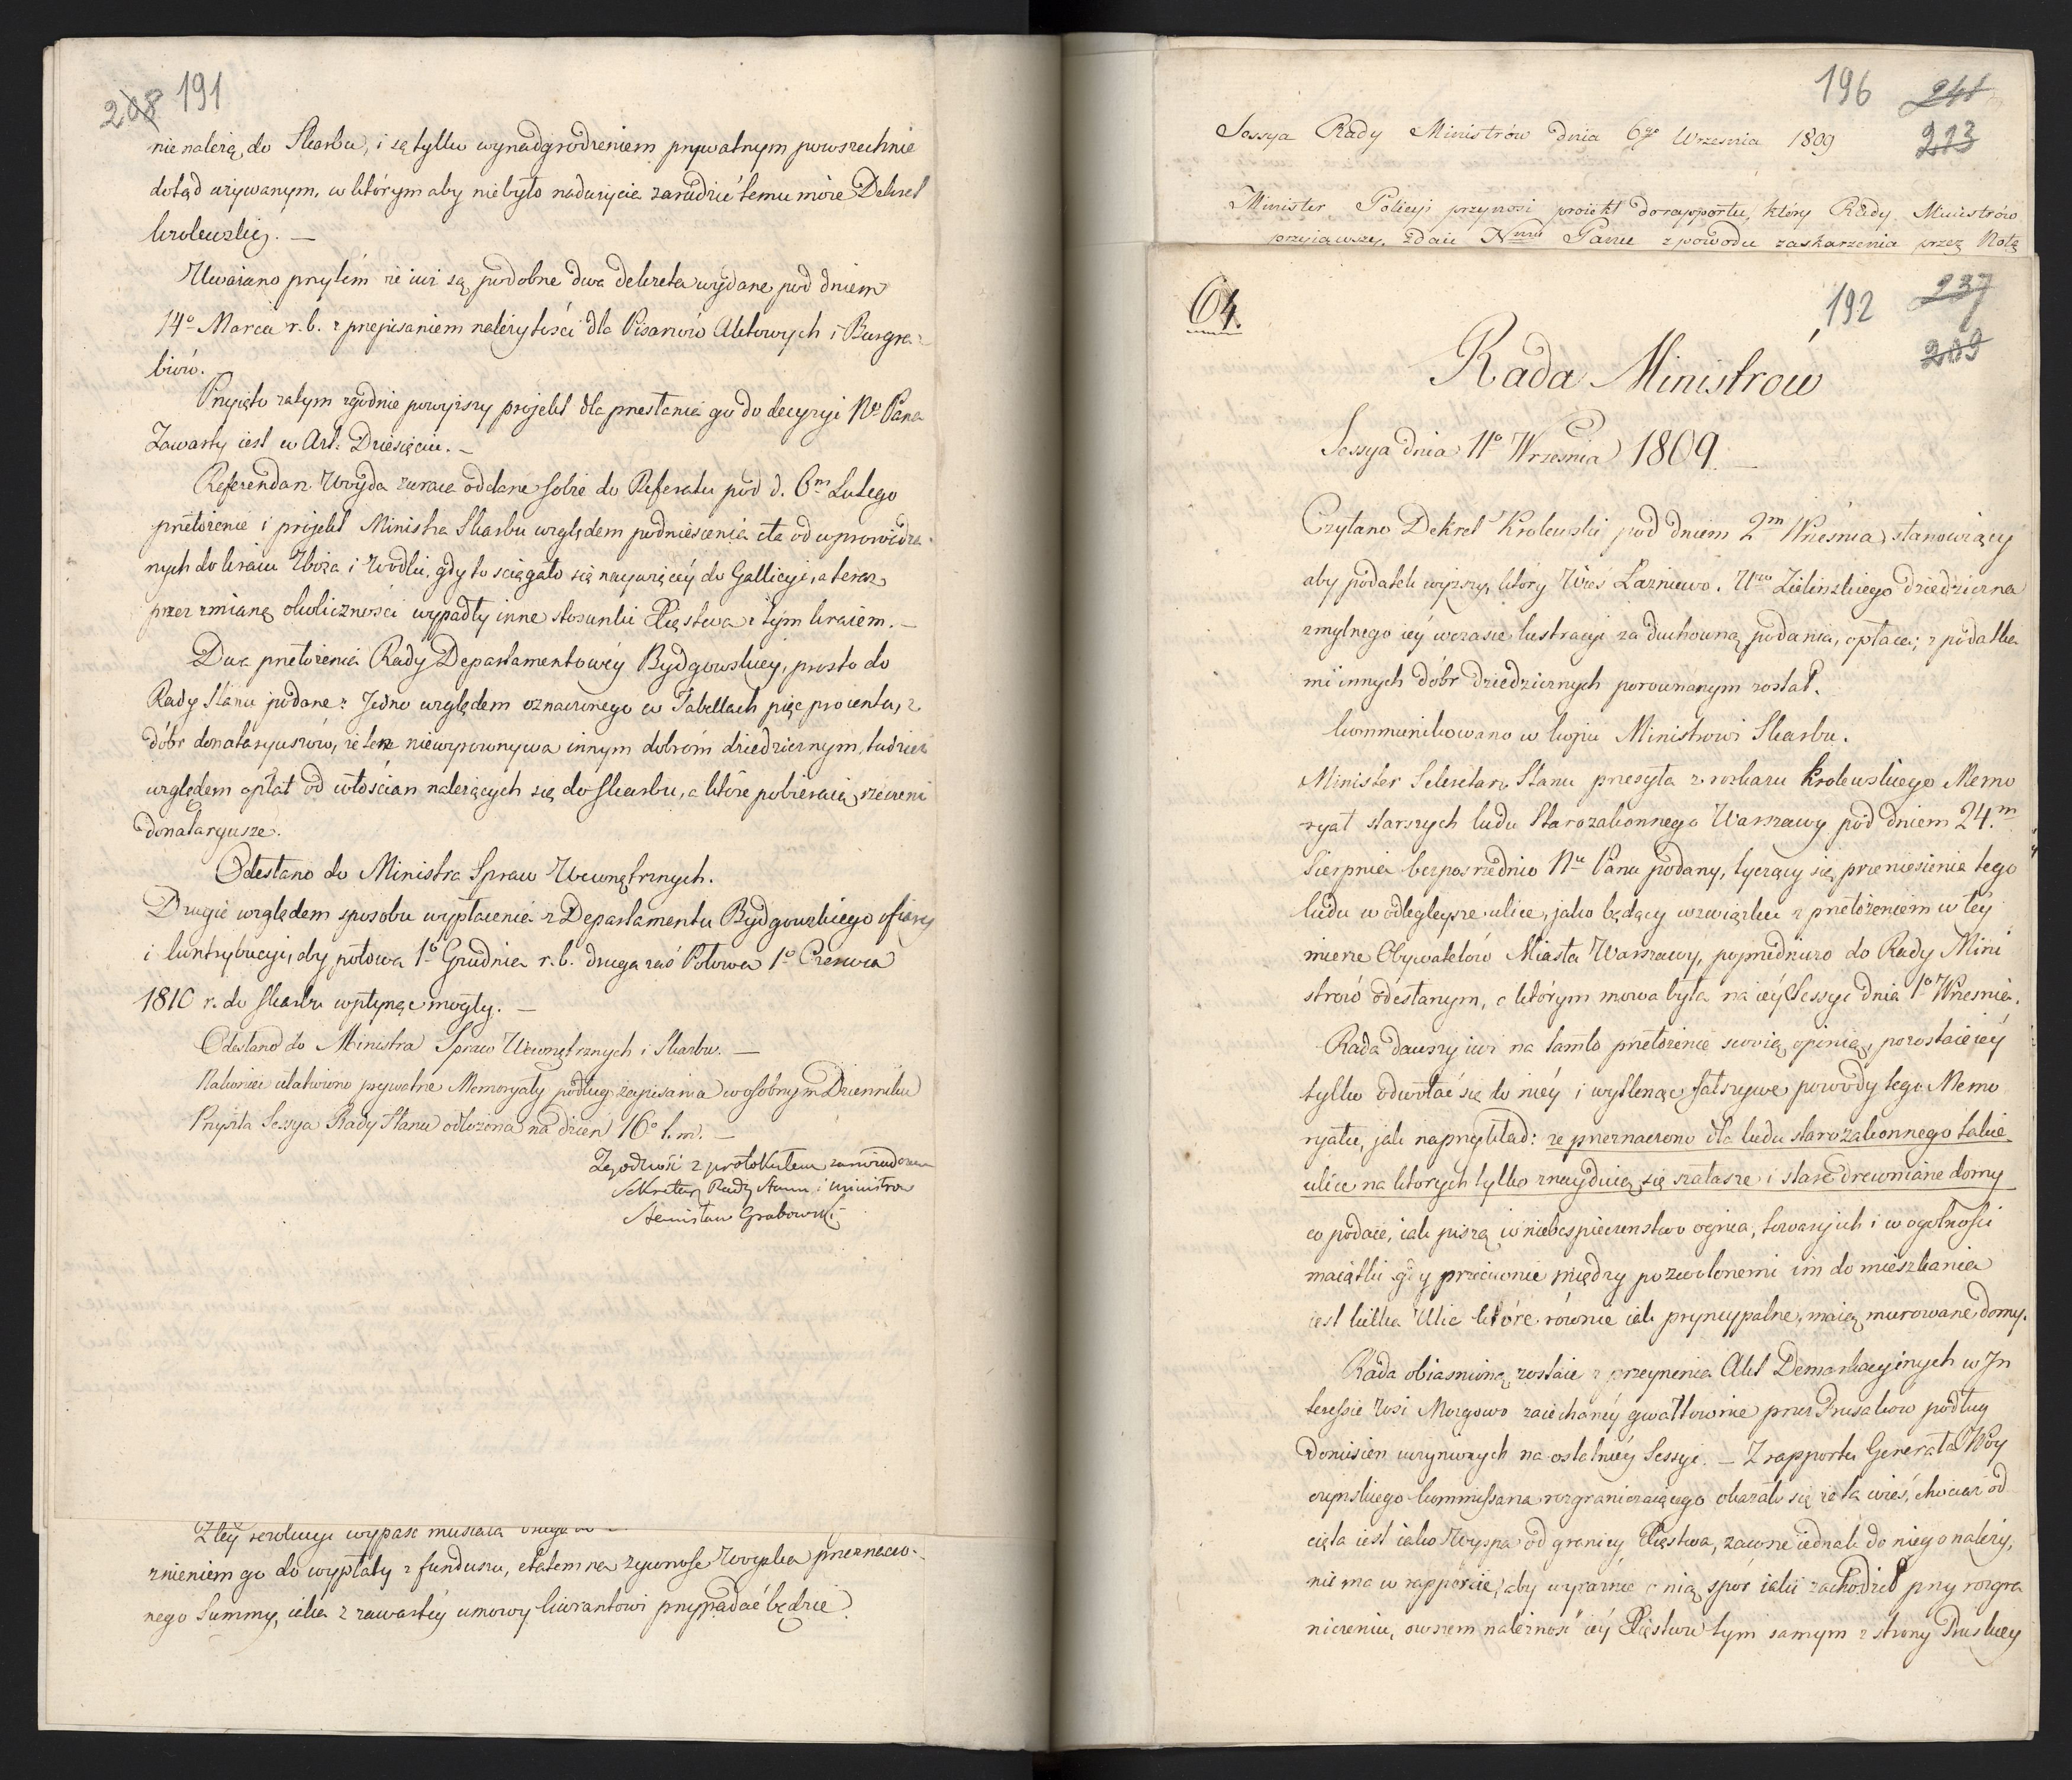 208 191
nie należą do Skarbu, i są tylko wynadgrodzeniem prywatnym powszechnie
dotąd używanym, w którym aby niebyło nadużycia zaradzić temu może Dekret
krolewski. —
Uważano przytém że iuż są podobne dwa dekreta wydane pod dniem
14º Marca r. b. z przepisaniem należytości dla Pisarzów Aktowych i Burgra-
biów.
Przyięto zatym zgodnie powyższy projekt dla przesłania go do decyzyi Nº Pana
Zawarty iest w Art. Dziesięciu. —
Referendarz Woyda zwraca oddane sobie do Referatu pod d. 6m Lutego
przełożenie i projekt Ministra Skarbu względem podniesienia cła od wprowadza-
nych do kraiu Zboża i Wodki, gdy to sciągało się naywięcéy do Gallicyi, a teraz
przez zmianę okoliczności wypadły inne stosunki Xięstwa z tym kraiem. —
Dwa przełożenia Rady Departamentowéy Bydgowskiey, prosto do
Rady Stanu podane: Jedno względem oznaczonego w Tabellach pięć procentu, z
dóbr donataryuszów, że te niewyrownywa innym dobróm dziedzicznym, tudzież
względem opłat od włościan należących się do skarbu, a które pobieraią rzeczeni
donataryusze.
Odesłano do Ministra Spraw Wewnętrznych.
Drugie względem sposobu wypłacenia z Departamentu Bydgowskiego ofiary
i kontrybucyi, aby połowa 1º Grudnia r. b. druga zaś Połowa 1º Czerwca
1810 r. do skarbu wpłynąć mogły. —
Odesłano do Ministra Spraw Wewnętrznych i Skarbu. —
Nakoniec ułatwiono prywatne Memoryały podług zapisania w osobnym Dzienniku
Przyszła Sessya Rady Stanu odłożona na dzień 16º t. m. —
Zgodność z protokułem zaświadczam
Sekretarz Rady Stanu i ministrów
Stanisław Grabowski
Z tey rewolucyi wypaść musiała
znieniem go do wypłaty z funduszu, etatem na żywność woyska przeznaczo-
nego Summy, iaka z zawartéy umowy liwerantowi przypadać będzie
196 241
213
Sessya Rady Ministrów dnia 6go Września 1809
Minister Policyi przynosi proiekt do rapportu, który Rady Ministrów
przyiąwszy, zdaie Nmu Panu z powodu zaskarżenia przez Notę
64.
192 237
209
Rada Ministrów
Sessya dnia 11º Września 1809. —
Czytano Dekret Krolewski pod dniem 2m Września stanowiący
aby podatek wyższy, który Wieś Łazniewo, Uro Zielinskiego dziedziczna
z mylnego iéy w czasie lustracyi za duchowną podania, opłaca; z podatka-
mi innych dóbr dziedzicznych porownanym został.
kommunikowano w kopii Ministrowi Skarbu.
Minister Sekretarz Stanu przesyła z rozkazu Krolewskiego Memo
ryał starszych ludu Starozakonnego Warszawy pod dniem 24.m
Sierpnia bezpośrednio Nu Panu podany, tyczący się przeniesienia tego
ludu w odległeysze ulice, jako będący w związku z przełożeniem w tey
mierze Obywatelów Miasta Warszawy, poprzedniczo do Rady Mini
strów odesłanym, o którym mowa była na iéy Sessyi dnia 1º Września.
Rada dawszy iuż na tamto przełożenie swoią opinią, pozostaie iéy
tylko odwołać się do niéy i wytknąć fałszywe powody tego Memo
ryału, jak naprzykład: że przeznaczono dla ludu starozakonnego takie
ulice na ktorych tylko znayduią się szałasze i stare drewniane domy
co podaie, iak piszą w niebespieczenstwo ognia, towary ich i w ogolności
maiątki gdy przeciwnie między pozwolonemi im do mieszkania
iest kilka Ulic które równie iak pryncypalne, maią murowane domy.
Rada obiasnioną zostaie z przeyrzenia Akt Demarkacyinych w In
teressie Wsi Morgowo zaiechanéy gwałtownie przez Prusaków podług
doniesień uczynionych na ostatniéy Sessyi. — Z rapportu Generała Woy
czynskiego kommissarza rozgraniczaiącego okazało się że ta wieś, chociaż od
cięta iest iako Wyspa od granicy Xięstwa, zawsze iednak do niego należy,
nie ma w rapporcie, aby wyraźnie o nią spór iaki zachodził przy rozgra
niczeniu, owszem należność iéy Xięstwu tym samym z strony Pruskiey